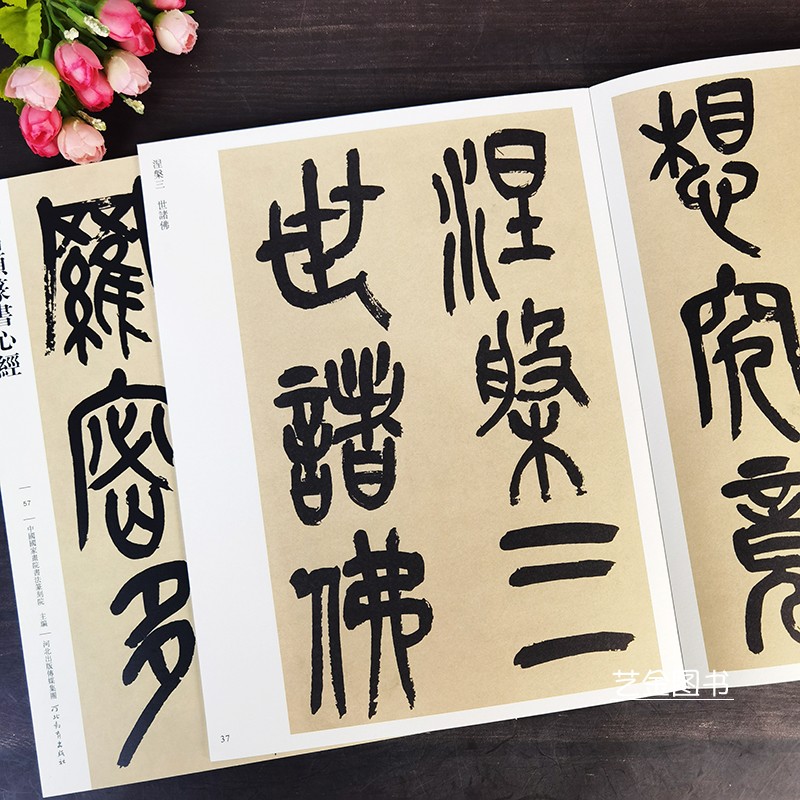 想究竟
涅槃三
世諸佛
涅槃三 世諸佛
37
羅密多
篆書心經
57
中國國家畫院書法篆刻院 主編
河北出版傳媒集團 河北教育出版社
艺全图书